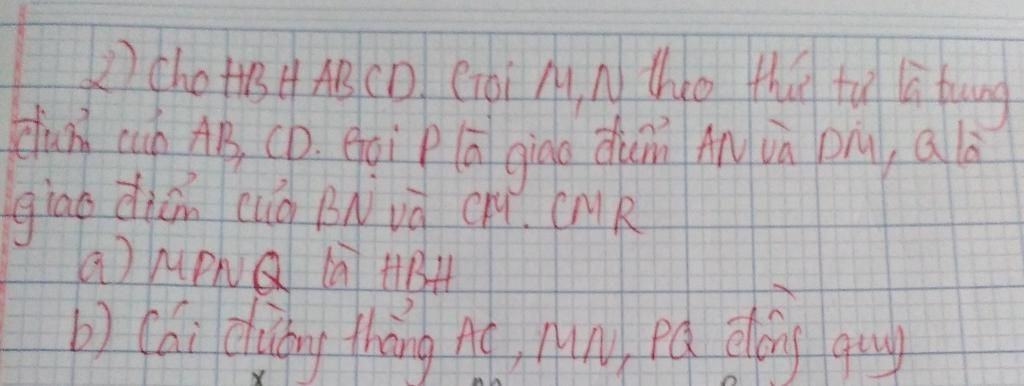 2) Cho HBH ABCD. Gọi M, N theo thứ tự là trung
điểm của AB, CD. Gọi P là giao điểm AN và DM, Q là
giao điểm của BN và CM. CMR
a) MPNQ là HBH
b) Các đường thẳng AC, MN, PQ đồng quy